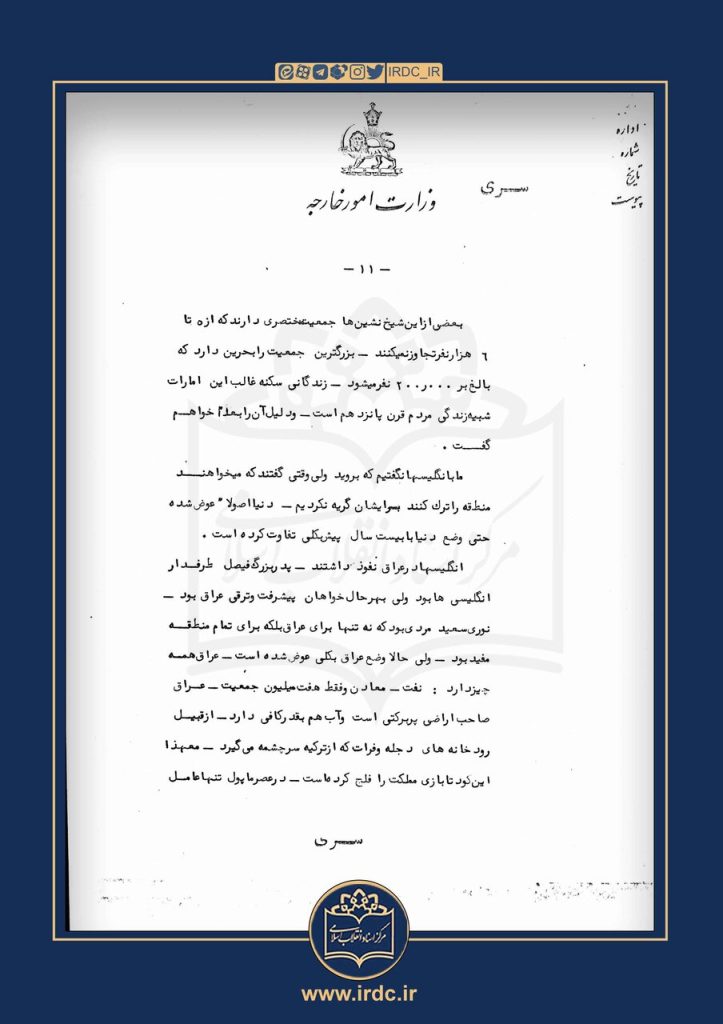 IRDC_IR
اداره
شماره
تاریخ
پیوست
سری
وزارت امور خارجه
- ۱۱ -
بعضی از این شیخ نشین ها جمعیت مختصری دارند که از ۵ تا
۶ هزار نفر تجاوز نمیکنند - بزرگترین جمعیت را بحرین دارد که
بالغ بر ۲۰۰٫۰۰۰ نفر میشود - زندگانی سکنه غالب این امارات
شبیه زندگی مردم قرن پانزدهم است - و دلیل آن را بعداً خواهم
گفت .
ما بانگلیسها نگفتیم که بروید ولی وقتی گفتند که میخواهند
منطقه را ترك کنند برایشان گریه نکردیم - دنیا اصولاً عوض شده
حتی وضع دنیا با بیست سال پیش بکلی تفاوت کرده است .
انگلیسها در عراق نفوذ داشتند - پدر بزرگ فیصل طرفدار
انگلیسی ها بود ولی بهر حال خواهان پیشرفت و ترقی عراق بود -
نوری سعید مردی بود که نه تنها برای عراق بلکه برای تمام منطقه
مفید بود - ولی حالا وضع عراق بکلی عوض شده است - عراق همه
چیز دارد : نفت - معادن و فقط هفت میلیون جمعیت - عراق
صاحب اراضی پر برکتی است و آب هم بقدر کافی دارد - از قبیل
رودخانه های دجله و فرات که از ترکیه سرچشمه می گیرد - معهذا
این کودتا بازی مملکت را فلج کرده است - در عصر ما پول تنها عامل
سری
مرکز اسناد انقلاب اسلامی
www.irdc.ir